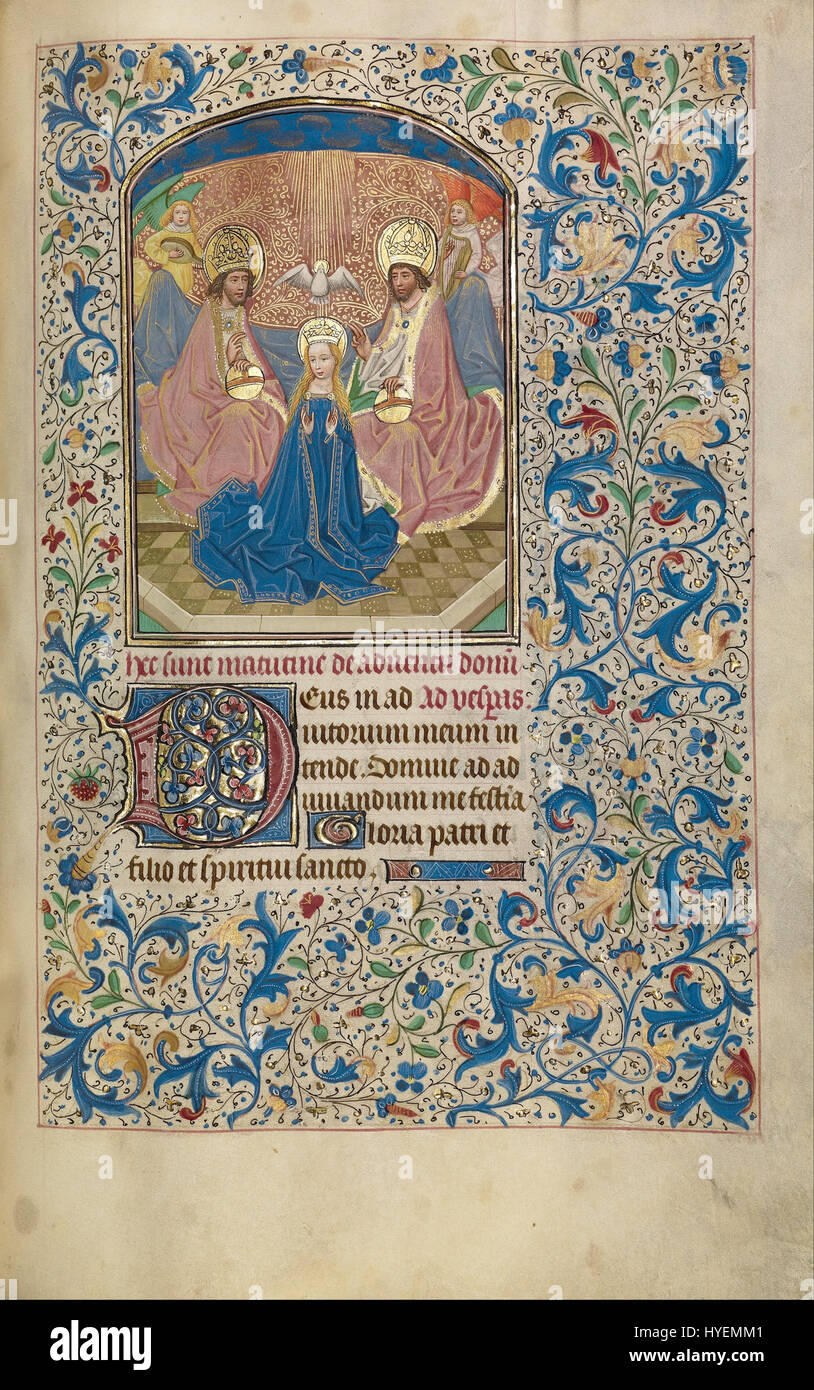 hec sunt matutine de adventu domi
Eus in ad Ad vespas.
iutorium meum in
tende. Domine ad ad
iuuandum me festina
Gloria patri et
filio et spiritui sancto.
alamy
Image ID: HYEMM1
www.alamy.com